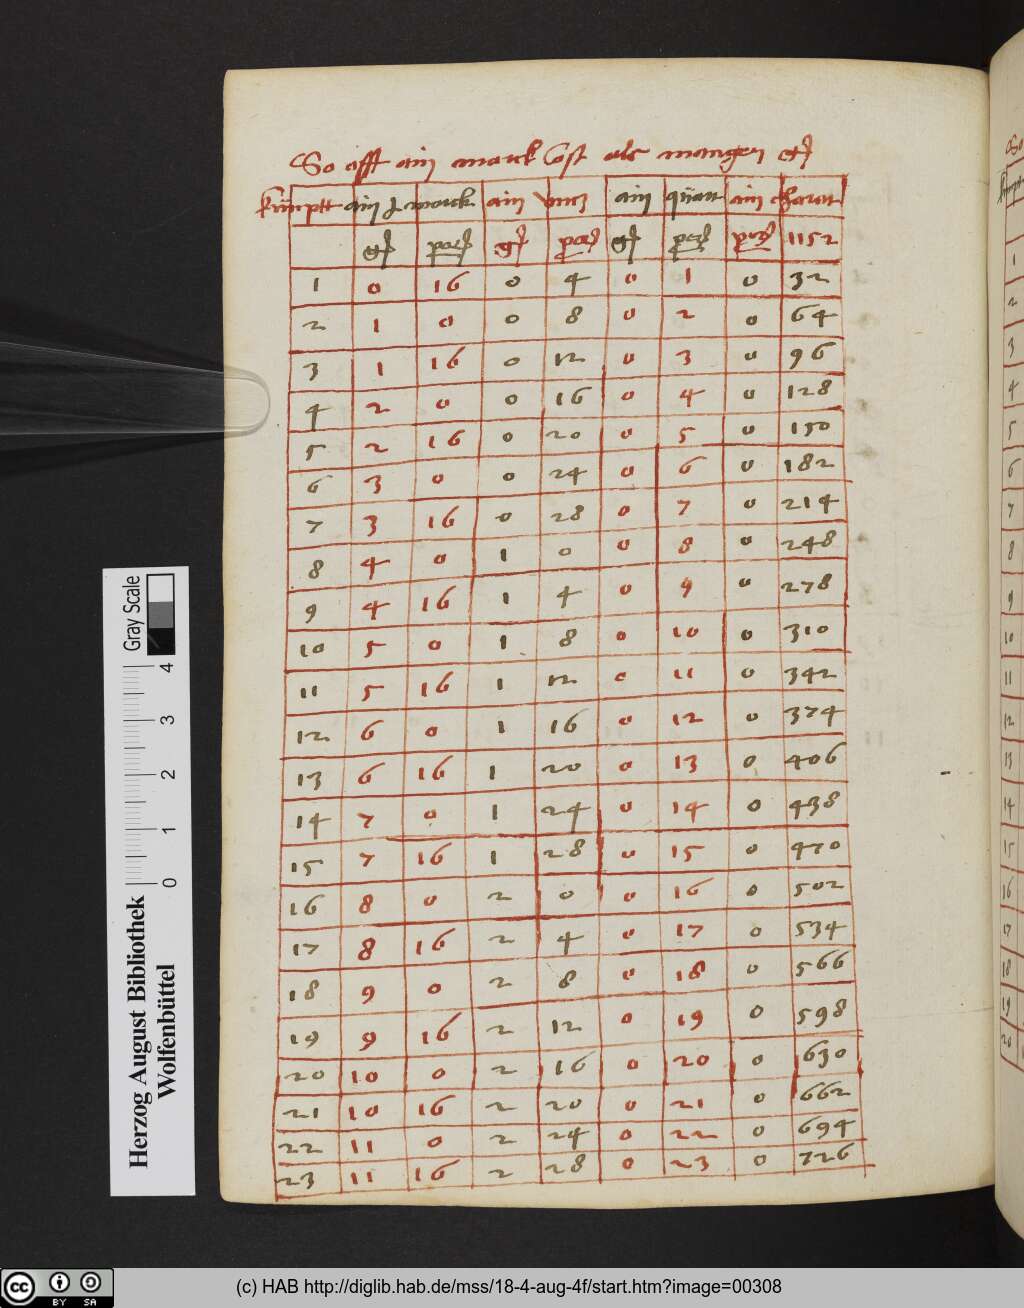 So offt ain marck Cost als mangen
kumptt ain marck ain ain quart ain
1152
1 0 16 0 4 0 1 0 32
2 1 0 0 8 0 2 0 64
3 1 16 0 12 0 3 0 96
4 2 0 0 16 0 4 0 128
5 2 16 0 20 0 5 0 150
6 3 0 0 24 0 6 0 182
7 3 16 0 28 0 7 0 214
8 4 0 1 0 0 8 0 248
9 4 16 1 4 0 9 0 278
10 5 0 1 8 0 10 0 310
11 5 16 1 12 0 11 0 342
12 6 0 1 16 0 12 0 374
13 6 16 1 20 0 13 0 406
14 7 0 1 24 0 14 0 438
15 7 16 1 28 0 15 0 470
16 8 0 2 0 0 16 0 502
17 8 16 2 4 0 17 0 534
18 9 0 2 8 0 18 0 566
19 9 16 2 12 0 19 0 598
20 10 0 2 16 0 20 0 630
21 10 16 2 20 0 21 0 662
22 11 0 2 24 0 22 0 694
23 11 16 2 28 0 23 0 726
So
1
2
3
4
5
6
7
8
9
10
11
12
13
14
15
16
17
18
19
20
Gray Scale
0 1 2 3 4
Herzog August Bibliothek
Wolfenbüttel
cc BY SA
(c) HAB http://diglib.hab.de/mss/18-4-aug-4f/start.htm?image=00308